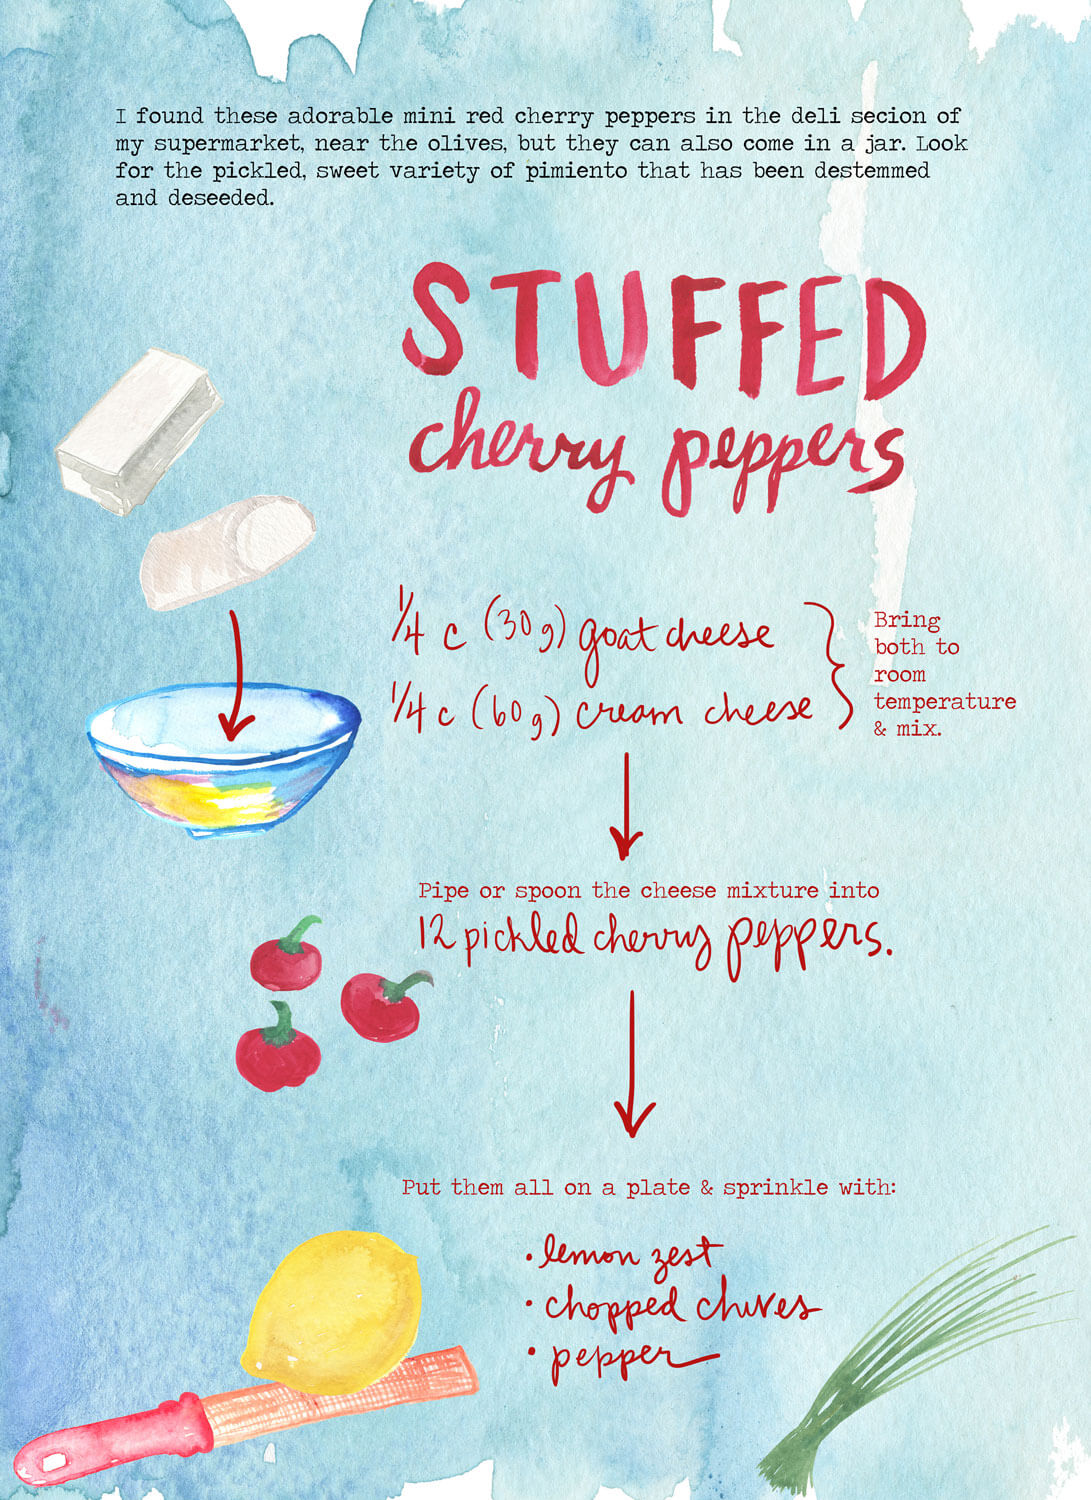 I found these adorable mini red cherry peppers in the deli secion of
my supermarket, near the olives, but they can also come in a jar. Look
for the pickled, sweet variety of pimiento that has been destemmed
and deseeded.
STUFFED
cherry peppers
1/4 c (30g) goat cheese
1/4 c (60g) cream cheese
Bring
both to
room
temperature
& mix.
Pipe or spoon the cheese mixture into
12 pickled cherry peppers.
Put them all on a plate & sprinkle with:
• lemon zest
• chopped chives
• pepper